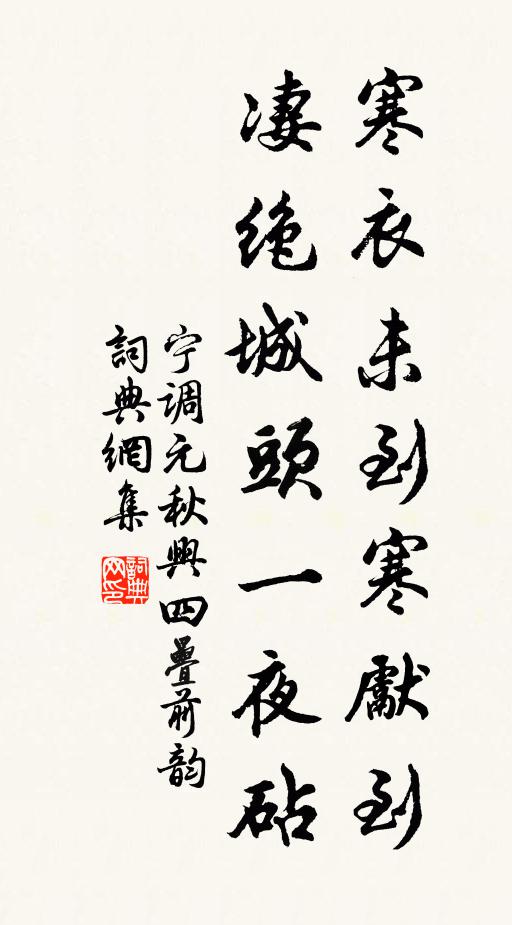 寒衣未到寒獻到
凄绝城頭一夜砧
宁调元秋興四疊前韵
詞典網集
詞典网印